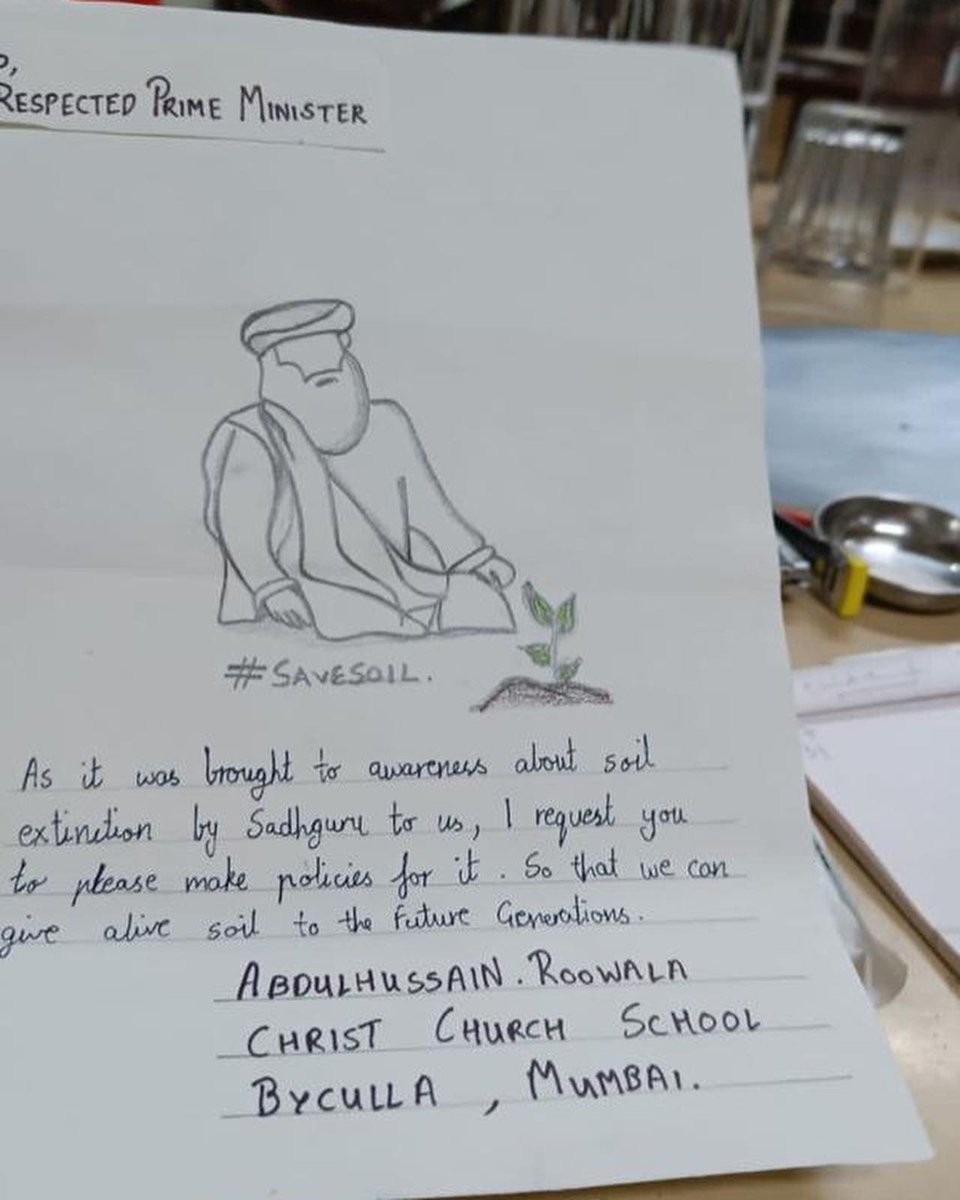 RESPECTED PRIME MINISTER
#SAVESOIL.
As it was brought to awareness about soil
extinction by Sadhguru to us, I request you
to please make policies for it. So that we can
give alive soil to the Future Generations.
ABDULHUSSAIN. ROOWALA
CHRIST CHURCH SCHOOL
BYCULLA, MUMBAI.